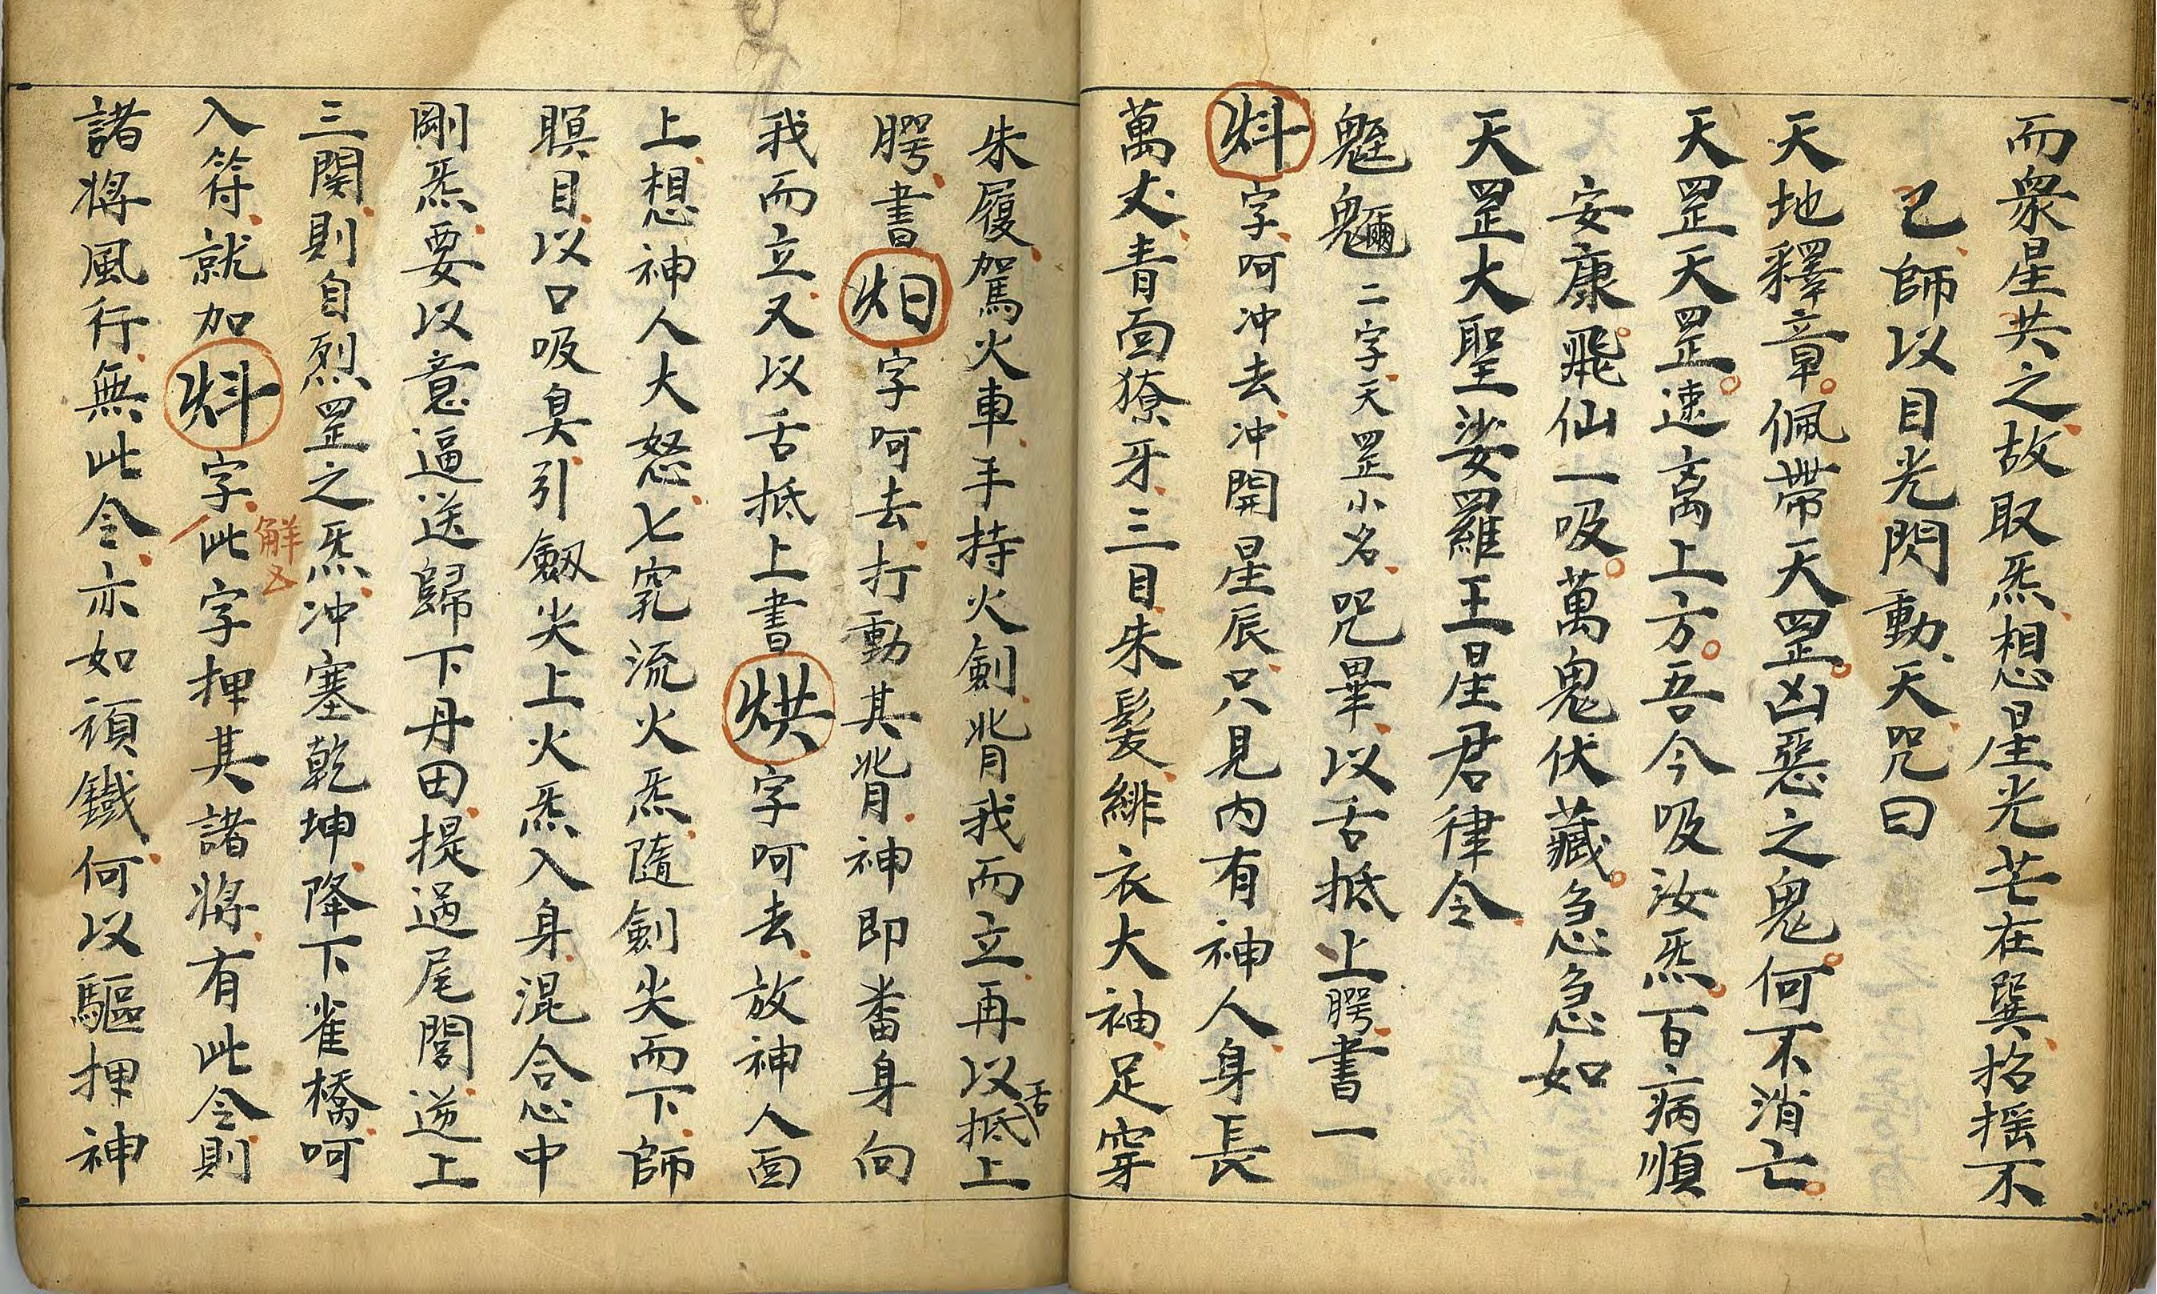 而衆星共之故取炁想星光芒在巽招揺不
已師以目光閃動天咒曰
天地釋章佩帶天罡凶惡之鬼何不消亡
天罡天罡速离上方吾今吸汝炁百病順
安康飛仙一吸萬鬼伏藏急急如
天罡大聖娑羅王星君律令
魁䰢二字天罡小名咒畢以舌抵上腭書一
炓字呵冲去冲開星辰只見内有神人身長
萬丈青面獠牙三目朱髮緋衣大袖足穿
朱履駕火車手持火劍背我而立再以舌抵上
腭書炟字呵去打動其背神即畨身向
我而立又以舌抵上書烘字呵去放神人面
上想神人大怒七竅流火炁隨劍尖而下師
瞑目以口吸臭引劔尖上火炁入身混合心中
剛炁要以意逼送歸下丹田提過尾閭逆上
三関則自烈罡之炁冲塞乾坤降下雀橋呵
入符就加炓字此字押其諸將有此令則
解
諸將風行無此令亦如頑鐵何以驅押神